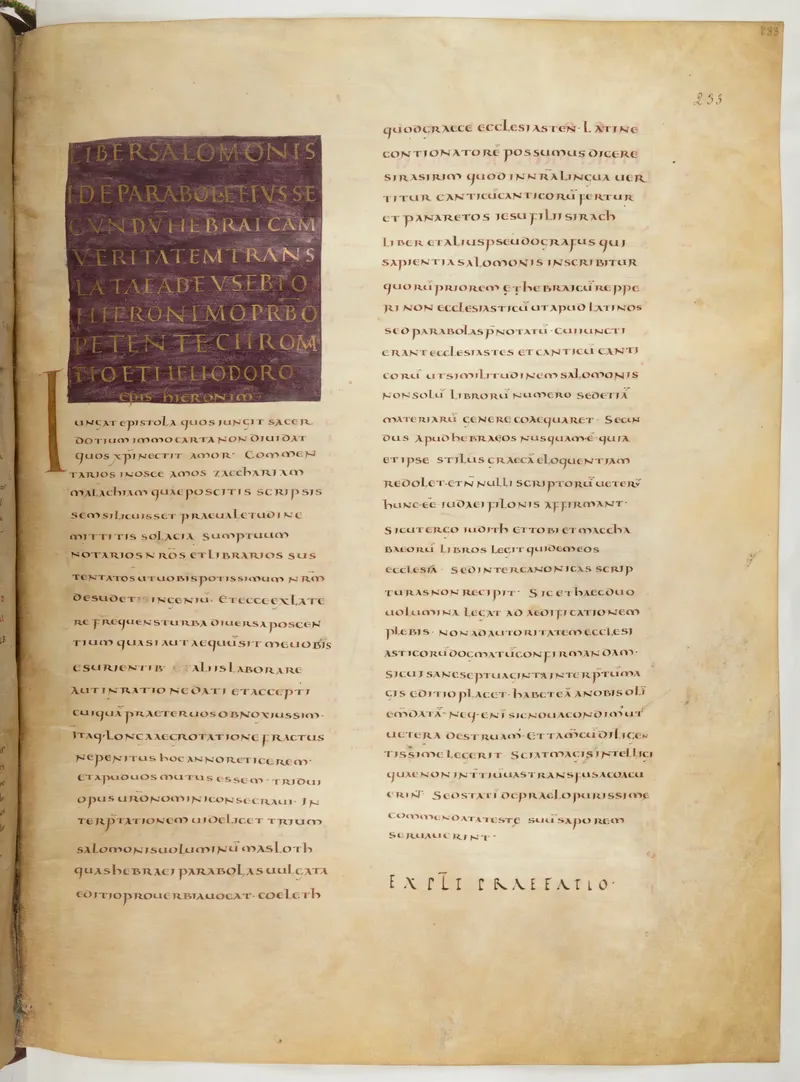 233
LIBER SALOMONIS
ID Ē PARABOLE EIVS SE
CVNDV̄ HEBRAICAM
VERITATEM TRANS
LATAE AB EVSEBIO
HIERONIMO PRBO
PETENTE CHROM
TIO ET HELIODORO
EPIS HIERONIM
IUNGAT EPISTOLA QUOS IUNGIT SACER
DOTIUM IMMO CARTA NON DIUIDAT
QUOS XPI NECTIT AMOR· COMMEN
TARIOS IN OSEE AMOS ZACCHARIAM
MALACHIAM QUAE POSCITIS SCRIPSIS
SEM SI LICUISSET PRAE UALETUDINE
MITTITIS SOLACIA SUMPTUUM
NOTARIOS NR̄OS ET LIBRARIOS SUS
TENTATOS UT UOBIS POTISSIMUM NR̄M
DESUDET INGENIŪ· ET ECCE EX LATE
RE FREQUENS TURBA DIUERSA POSCEN
TIUM QUASI AUT AEQUŪ SIT ME UOBIS
ESURIENTIB· ALIIS LABORARE
AUT IN RATIONE DATI ET ACCEPTI
CUIQUĀ PRAETER UOS OBNOXIUS SIM·
ITAQ· LONGA AEGROTATIONE FRACTUS
NE PENITUS HOC ANNO RETICEREM·
ET APUD UOS MUTUS ESSEM· TRIDUI
OPUS URO NOMINI CONSECRAUI· IN
TERPTATIONEM UIDELICET TRIUM
SALOMONIS UOLUMINŪ MASLOTH
QUAS HEBRAEI PARABOLAS UULGATA
EDITIO PROUERBIA UOCAT· COELETH
QUOD GRAECE ECCLESIASTEN· LATINE
CONTIONATORĒ POSSUMUS DICERE
SIRASIRIM QUOD IN NR̄A LINGUA UER
TITUR CANTICŪ CANTICORŪ FERTUR
ET PANARETOS IESU FILII SIRACH
LIBER ET ALIUS PSEUDOGRAFUS QUI
SAPIENTIA SALOMONIS INSCRIBITUR
QUORŪ PRIOREM ET HEBRAICŪ REPPE
RI NON ECCLESIASTICŪ UT APUD LATINOS
SED PARABOLAS P̄NOTATŪ· CUI IUNCTI
ERANT ECCLESIASTES ET CANTICŪ CANTI
CORŪ UT SIMILITUDINEM SALOMONIS
NON SOLŪ LIBRORŪ NUMERO SED ETIĀ
MATERIARŪ GENERE COAEQUARET· SECUN
DUS APUD HEBRAEOS NUSQUAM Ē· QUIA
ET IPSE STILUS GRAECĀ ELOQUENTIAM
REDOLET· ET NN̄ULLI SCRIPTORŪ UETERŪ
HUNC EĒ IUDAEI FILONIS AFFIRMANT·
SICUT ERGO IUDITH ET TOBI ET MACCHA
BAEORŪ LIBROS LEGIT QUIDEM EOS
ECCLESIĀ· SED INTER CANONICAS SCRIP
TURAS NON RECIPIT· SIC ET HAEC DUO
UOLUMINA LEGAT AD AEDIFICATIONEM
PLEBIS· NON AD AUTORITATEM ECCLESI
ASTICORŪ DOGMATŪ CONFIRMANDAM·
SI CUI SANE SEPTUAGINTA INTERPTUM MA
GIS EDITIO PLACET· HABET EĀ A NOBIS OLĪ
EMDATĀ· NEQ· ENĪ SIC NOUA CONDIM̄ UT
UETERA DESTRUAM̄· ET TAM̄ CŪ DILIGEN
TISSIME LEGERIT SCIAT MAGIS INTELLIGI
QUAE NON IN TTIŪ UAS TRANSFUSA COACU
ERINT· SED STATĪ DE PRAELO PURISSIME
COMMENDATA TESTE SUŪ SAPOREM
SERUAUERINT·
EXPLĪ PRAEFATIO·